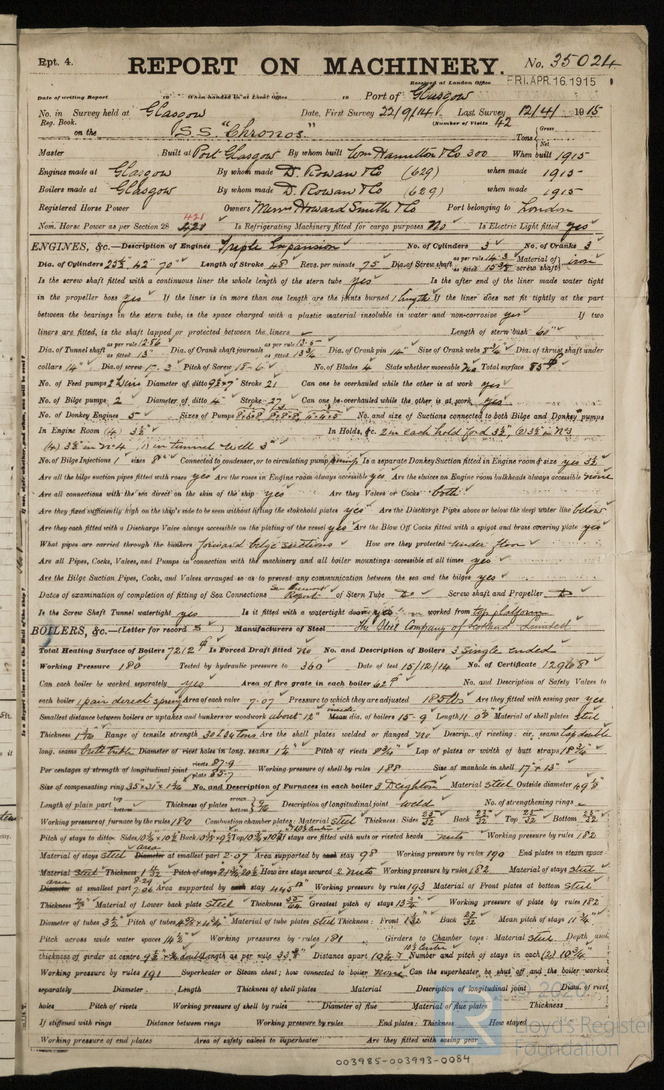 Rpt. 4.
REPORT ON MACHINERY.
No. 35024
Received at London Office
FRI. APR. 16 1915
Date of writing Report When handed in at Local Office Port of Glasgow
No. in Survey held at Glasgow Date, First Survey 22/9/14 Last Survey 12/4/ 1915
Reg. Book. (Number of Visits 42
on the S.S. "Chronos" Tons Gross Net
Master Built at Port Glasgow By whom built Wm Hamilton & Co 300 When built 1915
Engines made at Glasgow By whom made D. Rowan & Co (629) when made 1915
Boilers made at Glasgow By whom made D. Rowan & Co (629) when made 1915
Registered Horse Power Owners Messrs Howard Smith & Co Port belonging to London
421
Nom. Horse Power as per Section 28 Is Refrigerating Machinery fitted for cargo purposes No Is Electric Light fitted yes
ENGINES, &c.—Description of Engines Triple Expansion No. of Cylinders 3 No. of Cranks 3
Dia. of Cylinders 25½" 42" 70" Length of Stroke 48 Revs. per minute 75 Dia. of Screw shaft as per rule 14.3 as fitted Material of screw shaft iron
Is the screw shaft fitted with a continuous liner the whole length of the stern tube yes Is the after end of the liner made water tight
in the propeller boss yes If the liner is in more than one length are the joints burned 1 length If the liner does not fit tightly at the part
between the bearings in the stern tube, is the space charged with a plastic material insoluble in water and non-corrosive yes If two
liners are fitted, is the shaft lapped or protected between the liners Length of stern bush 60"
Dia. of Tunnel shaft as per rule 12.86 as fitted 13" Dia. of Crank shaft journals as per rule 13.5 as fitted 13¾ Dia. of Crank pin 14" Size of Crank webs Dia. of thrust shaft under
collars 14" Dia. of screw 17-3 Pitch of Screw 18-6 No. of Blades 4 State whether moveable No Total surface 85
No. of Feed pumps 2 Diameter of ditto Stroke 21 Can one be overhauled while the other is at work yes
No. of Bilge pumps 2 Diameter of ditto 4" Stroke 27 Can one be overhauled while the other is at work yes
No. of Donkey Engines 5 Sizes of Pumps No. and size of Suctions connected to both Bilge and Donkey pumps
In Engine Room (4) 3½" In Holds, &c. 2 in each hold
(4) 3½" in No 4, (1) in tunnel well 3"
No. of Bilge Injections 1 sizes 8" Connected to condenser, or to circulating pump pump Is a separate Donkey Suction fitted in Engine room & size yes 3½
Are all the bilge suction pipes fitted with roses yes Are the roses in Engine room always accessible yes Are the sluices on Engine room bulkheads always accessible none
Are all connections with the sea direct on the skin of the ship yes Are they Valves or Cocks both
Are they fixed sufficiently high on the ship's side to be seen without lifting the stokehold plates yes Are the Discharge Pipes above or below the deep water line below
Are they each fitted with a Discharge Valve always accessible on the plating of the vessel yes Are the Blow Off Cocks fitted with a spigot and brass covering plate yes
What pipes are carried through the bunkers forward bilge suctions How are they protected under floor
Are all Pipes, Cocks, Valves, and Pumps in connection with the machinery and all boiler mountings accessible at all times yes
Are the Bilge Suction Pipes, Cocks, and Valves arranged so as to prevent any communication between the sea and the bilges yes
Dates of examination of completion of fitting of Sea Connections of Stern Tube Screw shaft and Propeller
Is the Screw Shaft Tunnel watertight yes Is it fitted with a watertight door yes worked from top platform
BOILERS, &c.—(Letter for record S) Manufacturers of Steel The Steel Company of Scotland Limited
Total Heating Surface of Boilers 7212 Is Forced Draft fitted No No. and Description of Boilers 3 Single ended
Working Pressure 180 Tested by hydraulic pressure to 360 Date of test 15/12/14 No. of Certificate 12968
Can each boiler be worked separately yes Area of fire grate in each boiler 62 No. and Description of Safety Valves to
each boiler 1 pair direct spring Area of each valve 7.07 Pressure to which they are adjusted 185 lbs Are they fitted with easing gear yes
Smallest distance between boilers or uptakes and bunkers or woodwork about 12" Mean dia. of boilers 15-9 Length Material of shell plates steel
Thickness Range of tensile strength Are the shell plates welded or flanged no Descrip. of riveting: cir. seams lap double
long. seams butt treble Diameter of rivet holes in long. seams 1¼" Pitch of rivets 8¾" Lap of plates or width of butt straps 18¾"
Per centages of strength of longitudinal joint rivets 87.9 plate 85.7 Working pressure of shell by rules 188 Size of manhole in shell 17" x 13"
Size of compensating ring No. and Description of Furnaces in each boiler 3 Deighton Material steel Outside diameter 49½"
Length of plain part top bottom Thickness of plates crown bottom Description of longitudinal joint weld No. of strengthening rings
Working pressure of furnace by the rules 180 Combustion chamber plates: Material steel Thickness: Sides Back Top Bottom
Pitch of stays to ditto: Sides Back Top If stays are fitted with nuts or riveted heads nuts Working pressure by rules 182
Material of stays steel area Diameter at smallest part 2.07 Area supported by each stay 98 Working pressure by rules 190 End plates in steam space:
Material steel Thickness Pitch of stays How are stays secured 2 nuts Working pressure by rules 182 Material of stays steel
area Diameter at smallest part Area supported by each stay 445 Working pressure by rules 193 Material of Front plates at bottom steel
Thickness Material of Lower back plate steel Thickness Greatest pitch of stays Working pressure of plate by rules 182
Diameter of tubes 3½" Pitch of tubes Material of tube plates steel Thickness: Front Back Mean pitch of stays 11¾"
Pitch across wide water spaces 14½" Working pressures by rules 181 Girders to Chamber tops: Material steel Depth and
thickness of girder at centre Length as per rule Distance apart Number and pitch of stays in each (2) 10¾"
Working pressure by rules 191 Superheater or Steam chest; how connected to boiler none Can the superheater be shut off and the boiler worked
separately Diameter Length Thickness of shell plates Material Description of longitudinal joint Diam. of rivet
holes Pitch of rivets Working pressure of shell by rules Diameter of flue Material of flue plates Thickness
If stiffened with rings Distance between rings Working pressure by rules End plates: Thickness How stayed
Working pressure of end plates Area of safety valves to superheater Are they fitted with easing gear
003985-003993-0084
© 2020
Lloyd's Register
Foundation